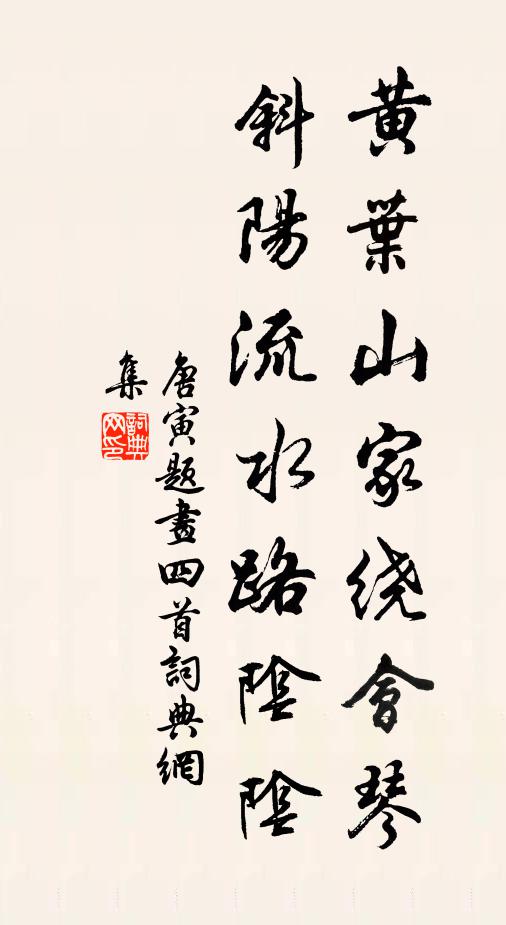 黃葉山家绕會琴
斜陽流水路陰陰
唐寅題畫四首詞典網
集
詞典
网印